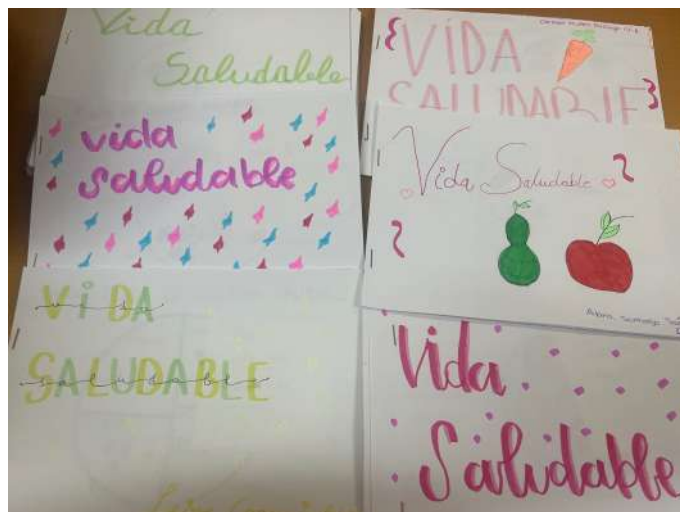 Vida
Saludable
VIDA
SALUDABLE
vida
saludable
Vida Saludable
VIDA
saludable
SALUDABLE
Vida
Saludable